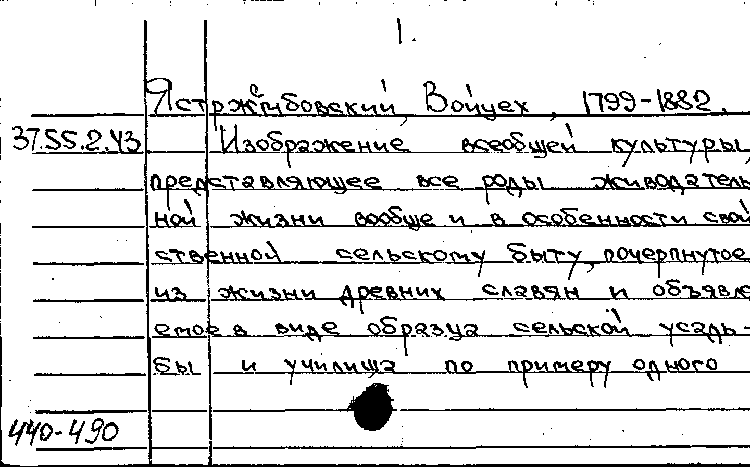 1.
Ястржембовский, Войцех, 1799-1882.
37.55.2.43 Изображение всеобщей культуры,
представляющее все роды живодатель
ной жизни вообще и в особенности свой
ственной сельскому быту, почерпнутое
из жизни древних славян и объявля
емое в виде образца сельской усадь-
бы и училища по примеру одного
440-490